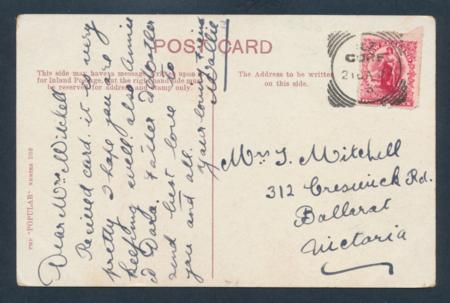 POST CARD
This side may have a message written upon it
for Inland Postage, but the right-hand side must
be reserved for address and stamp only.
The Address to be written
on this side.
THE "POPULAR" SERIES
Dear Mrs Mitchell
Recived card. it is very
pretty I hope you are
keeping well. also Annie
& Dada. Father & Mother
send best love to
you and all.
your loving
Mrs J. Mitchell
312 Creswick Rd.
Ballarat
Victoria